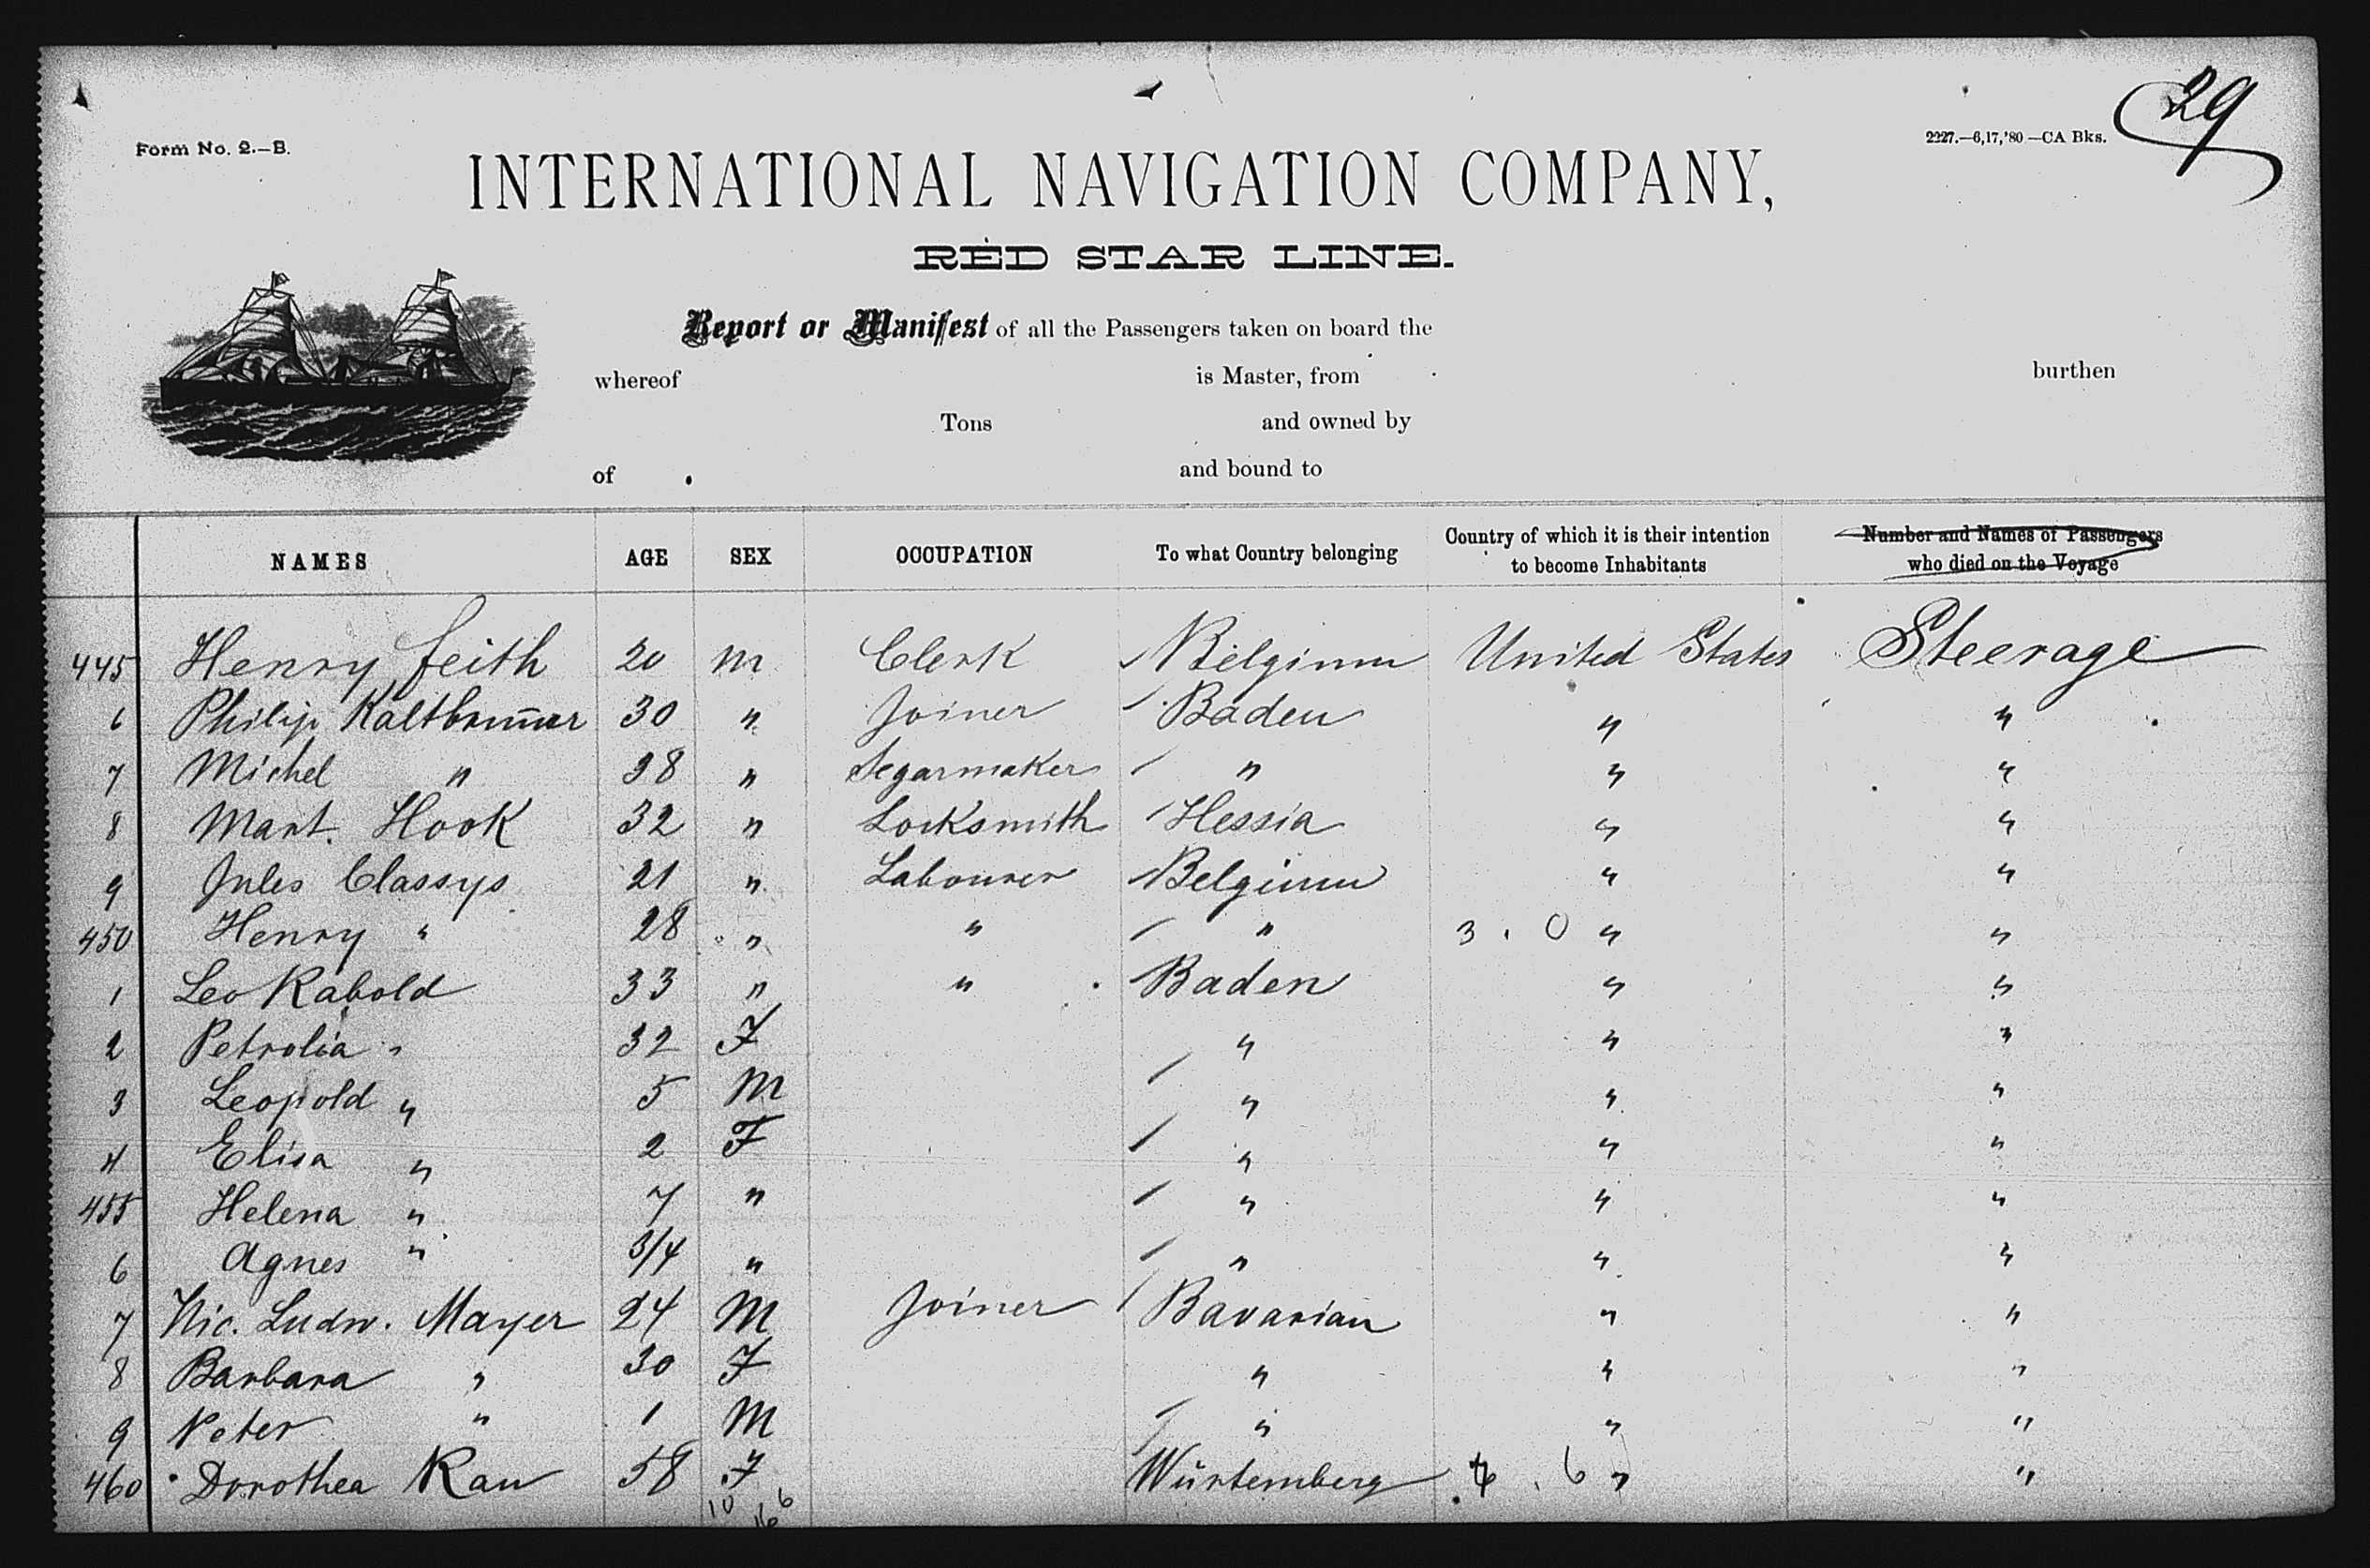 29
Form No. 2.—B.
2227.—6,17,'80—CA Bks.
INTERNATIONAL NAVIGATION COMPANY,
RED STAR LINE.
Report or Manifest of all the Passengers taken on board the
whereof is Master, from burthen
Tons and owned by
of and bound to
NAMES AGE SEX OCCUPATION To what Country belonging Country of which it is their intention to become Inhabitants Number and Names of Passengers who died on the Voyage
445 Henry Feith 20 m Clerk Belgium United States Steerage
6 Philip Kaltbrunner 30 " Joiner Baden " "
7 Michel " 38 " Segarmaker " " "
8 Mart. Hook 32 " Locksmith Hessia " "
9 Jules Classys 21 " Labourer Belgium " "
450 Henry " 28 " " " 3 . 0 " "
1 Leo Rabold 33 " " Baden " "
2 Petrolia " 32 F " " "
3 Leopold " 5 M " " "
4 Elisa " 2 F " " "
455 Helena " 7 " " " "
6 Agnes " 3/4 " " " "
7 Nic. Ludw. Mayer 24 M Joiner Bavarian " "
8 Barbara " 30 F " " "
9 Peter " 1 M " " "
460 Dorothea Rau 58 F Würtemberg 6 " "
10 6
16